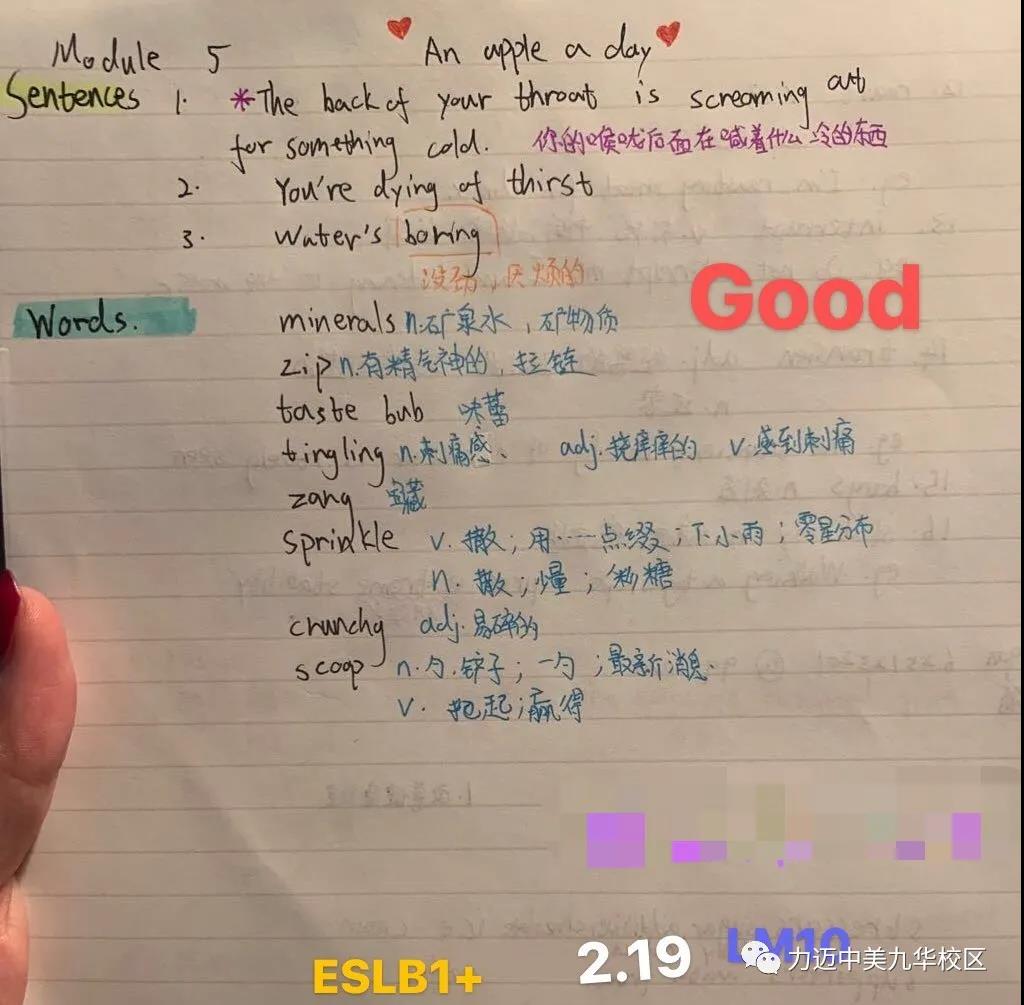 Module 5 An apple a day
Sentences 1. *The back of your throat is screaming out
for something cold. 你的喉咙后面在喊着什么冷的东西
2. You're dying of thirst
3. Water's boring
没劲,厌烦的
Good
Words.
minerals n.矿泉水,矿物质
zip n.有精气神的,拉链
taste bub 味蕾
tingling n.刺痛感、 adj.挠痒痒的 v.感到刺痛
zang 宝藏
sprinkle v.撒;用……点缀;下小雨;零星分布
n.撒;少量;粉糖
crunchy adj.易碎的
scoop n.勺.铲子;一勺;最新消息.
v.挖起;赢得
ESLB1+ 2.19 LM10
力迈中美九华校区